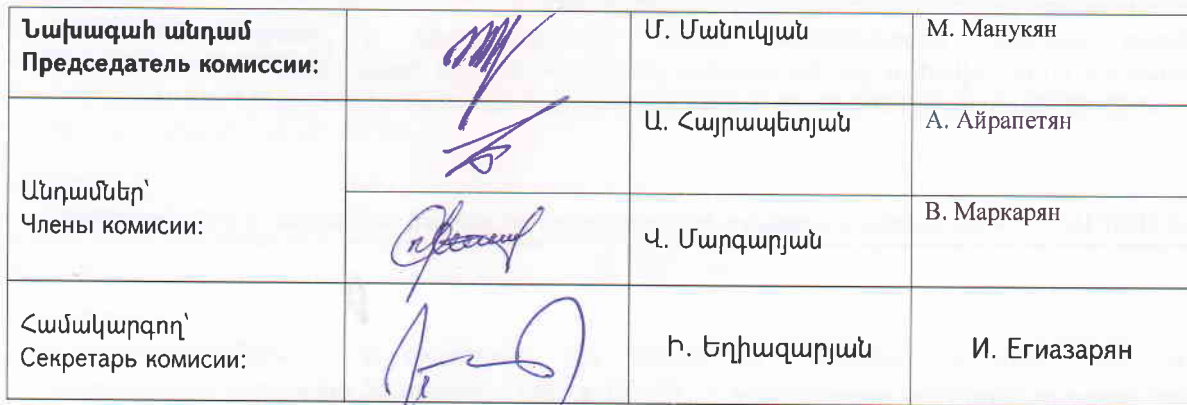 Նախագահ անդամ
Председатель комиссии:
Մ. Մանուկյան
М. Манукян
Անդամներ՝
Члены комисии:
Ա. Հայրապետյան
А. Айрапетян
Վ. Մարգարյան
В. Маркарян
Համակարգող՝
Секретарь комисии:
Ի. Եղիազարյան
И. Егиазарян